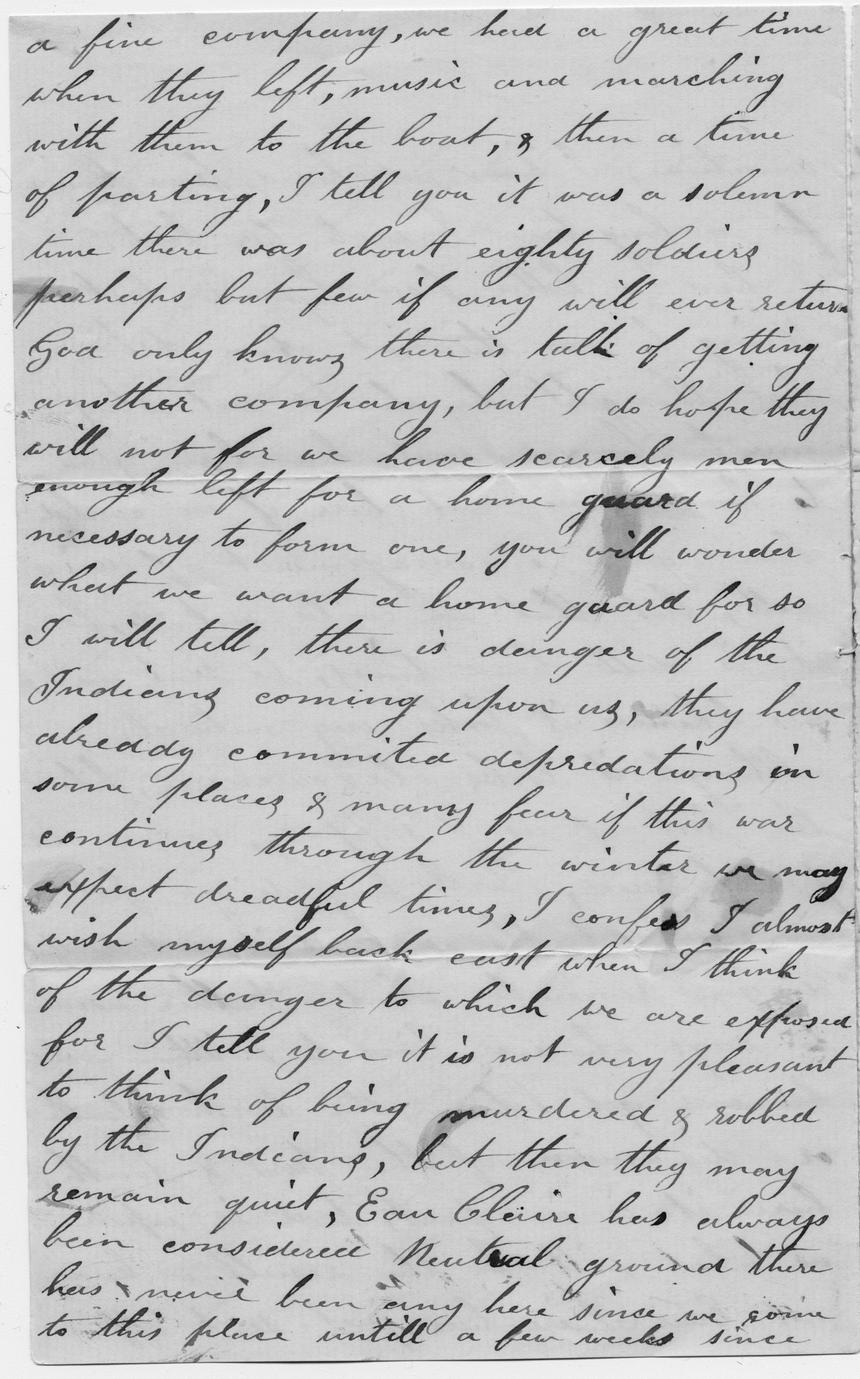 a fine company, we had a great time
when they left, music and marching
with them to the boat, & then a time
of parting, I tell you it was a solemn
time there was about eighty soldiers
perhaps but few if any will ever return
God only knows there is talk of getting
another company, but I do hope they
will not for we have scarcely men
enough left for a home guard if
necessary to form one, you will wonder
what we want a home guard for so
I will tell, there is danger of the
Indians coming upon us, they have
alreddy commited depredations in
some places & many fear if this war
continues through the winter we may
expect dreadful times, I confess I almost
wish myself back east when I think
of the danger to which we are exposed
for I tell you it is not very pleasant
to think of being murdered & robbed
by the Indians, but then they may
remain quiet, Eau Claire has always
been considered Neutral ground there
has never been any here since we come
to this place untill a few weeks since